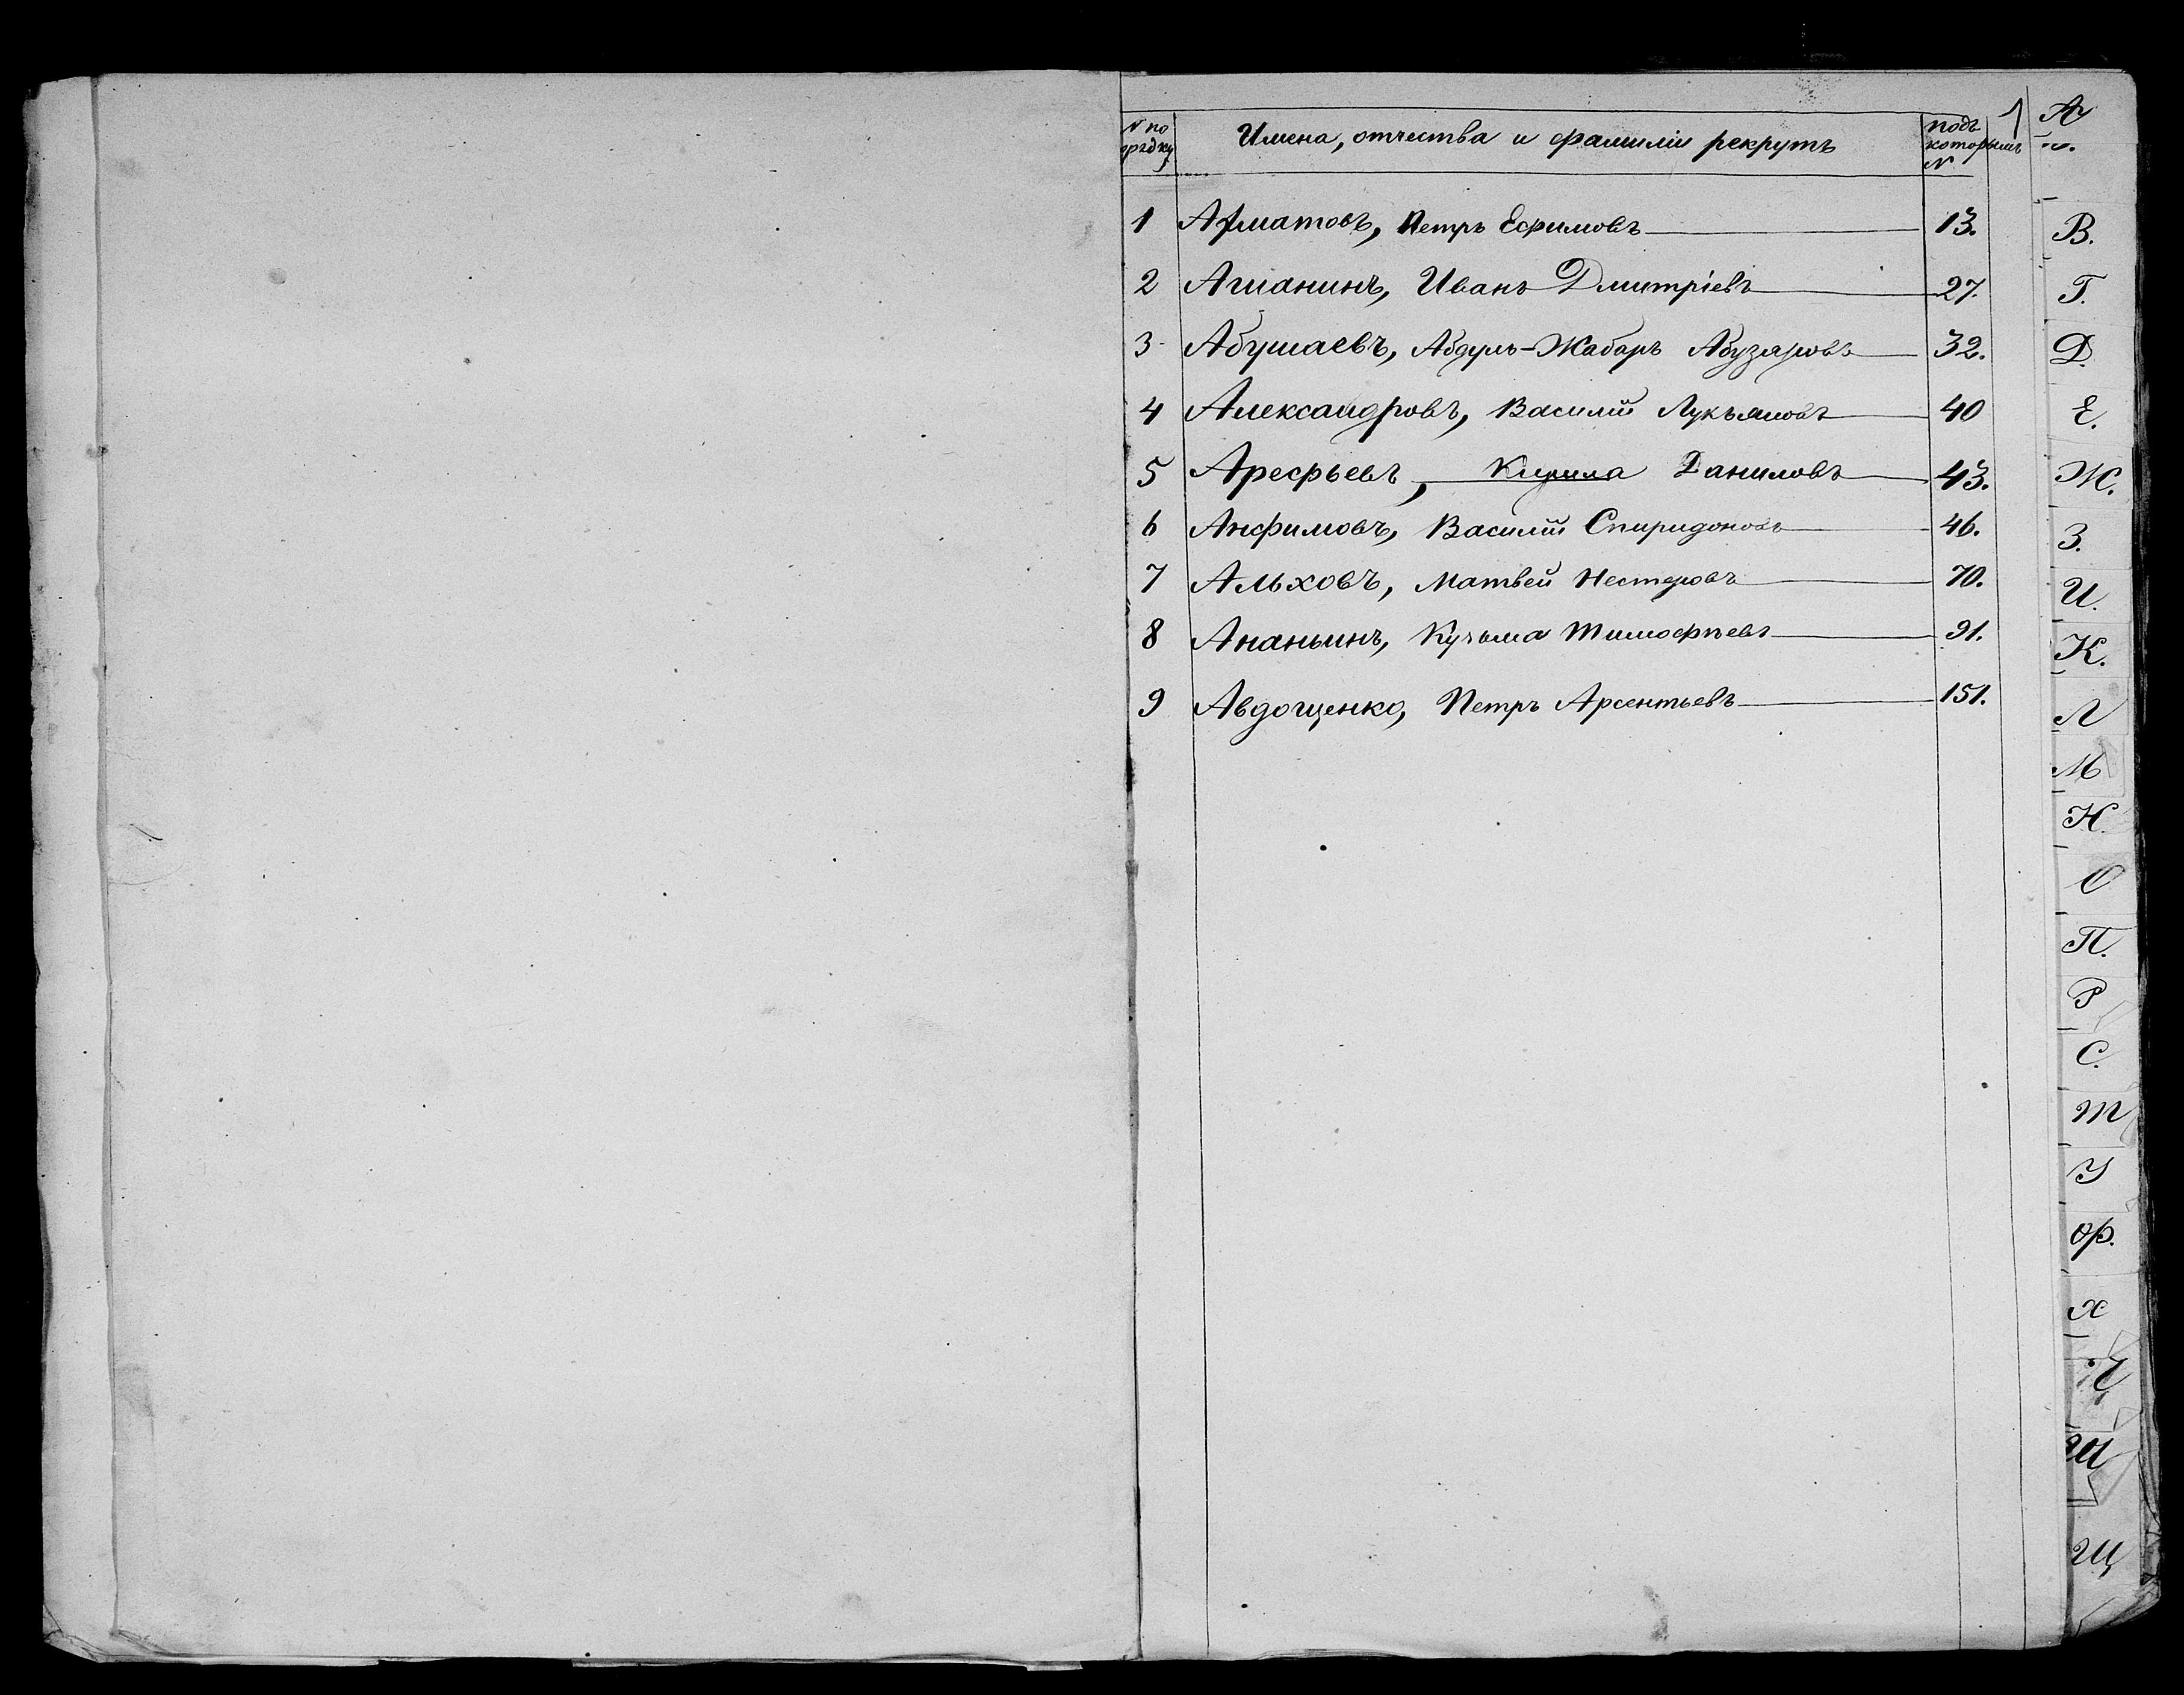 1
N по порядку Имена, отчества и фамиліи рекрутъ подъ которымъ N
1 Арматовъ, Петръ Ефимовъ 13.
2 Ашанинъ, Иванъ Дмитріевъ 27.
3 Абушаевъ, Абдулъ-Жабаръ Абузяровъ 32.
4 Александровъ, Василій Лукьяновъ 40
5 Арефьевъ, Кирила Даниловъ 43.
6 Анфимовъ, Василій Спиридоновъ 46.
7 Альховъ, Матвей Нестеровъ 70.
8 Ананьинъ, Кузьма Тимофѣевъ 91.
9 Авдощенко, Петръ Арсентьевъ 151.
А
В.
Г.
Д.
Е.
Ж.
З.
И.
К.
Л
М
Н.
О
П.
Р
С.
Т
У
Ф.
Х
Ч
Ш
Щ